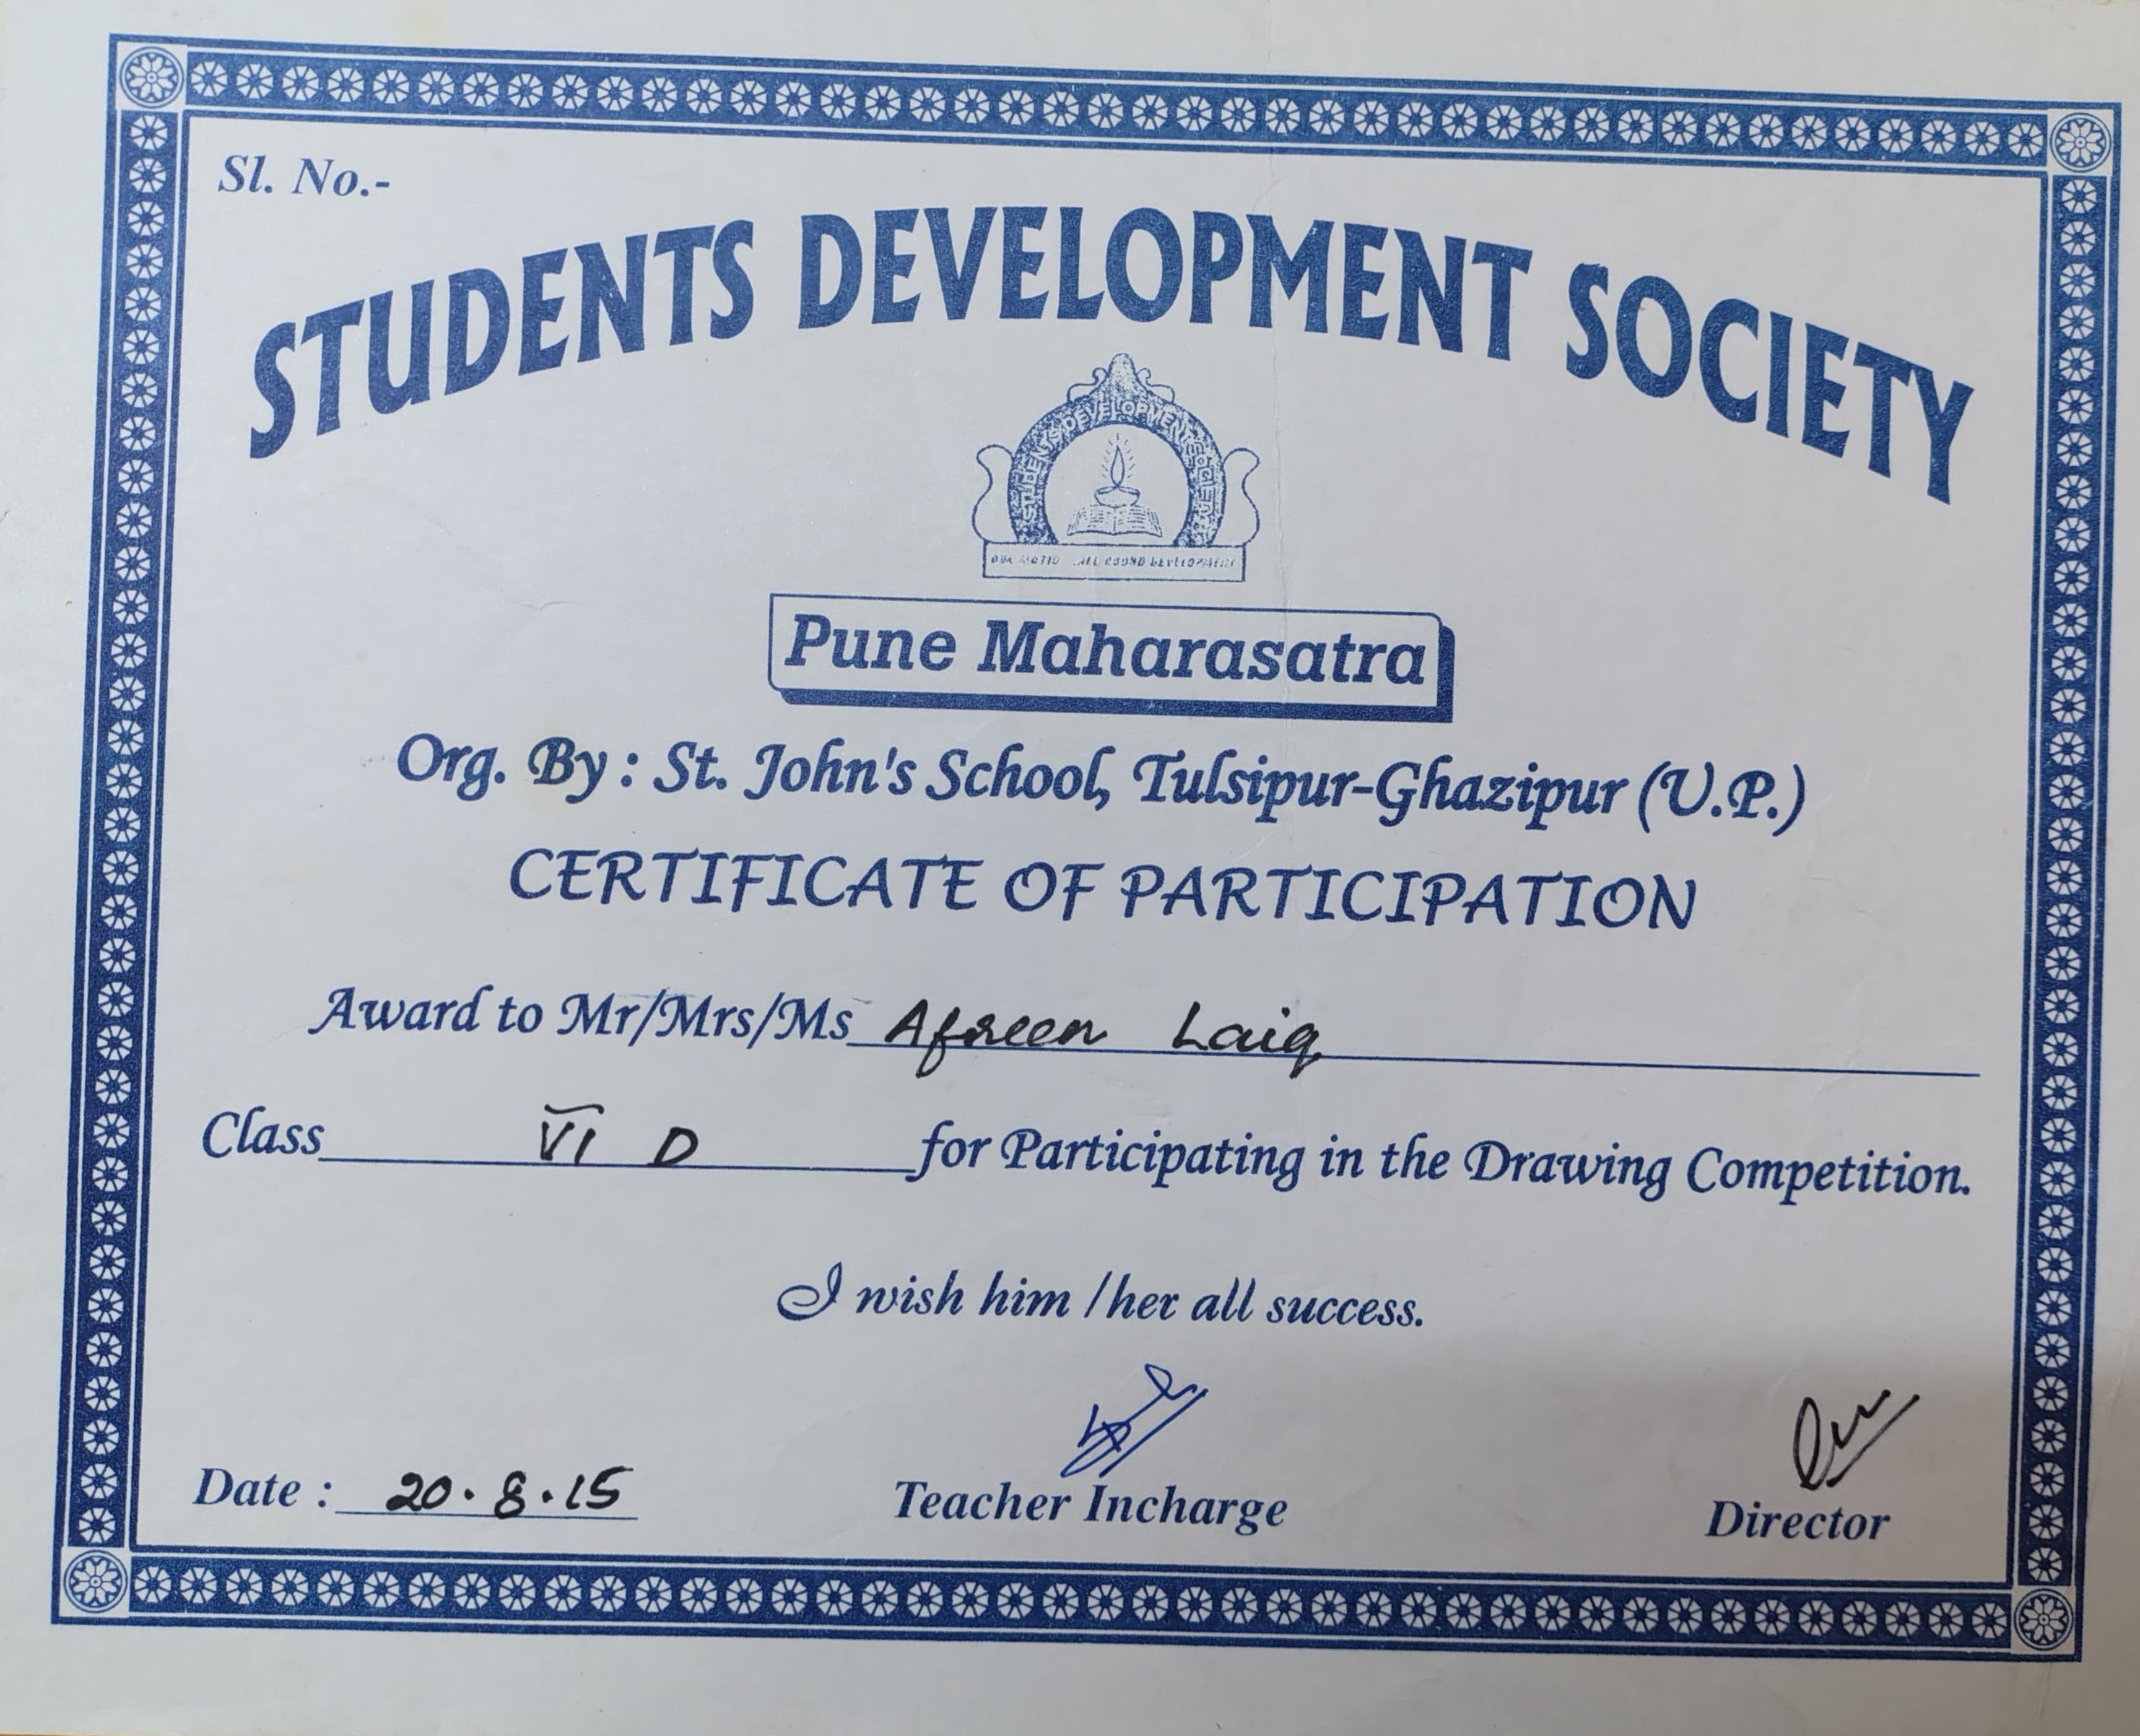 Sl. No.-
STUDENTS DEVELOPMENT SOCIETY
STUDENTS DEVELOPMENT SOCIETY
OUR MOTTO ALL ROUND DEVELOPMENT
Pune Maharasatra
Org. By : St. John's School, Tulsipur-Ghazipur (U.P.)
CERTIFICATE OF PARTICIPATION
Award to Mr/Mrs/Ms Afreen Laiq
Class VI D for Participating in the Drawing Competition.
I wish him /her all success.
Date : 20.8.15
Teacher Incharge
Director